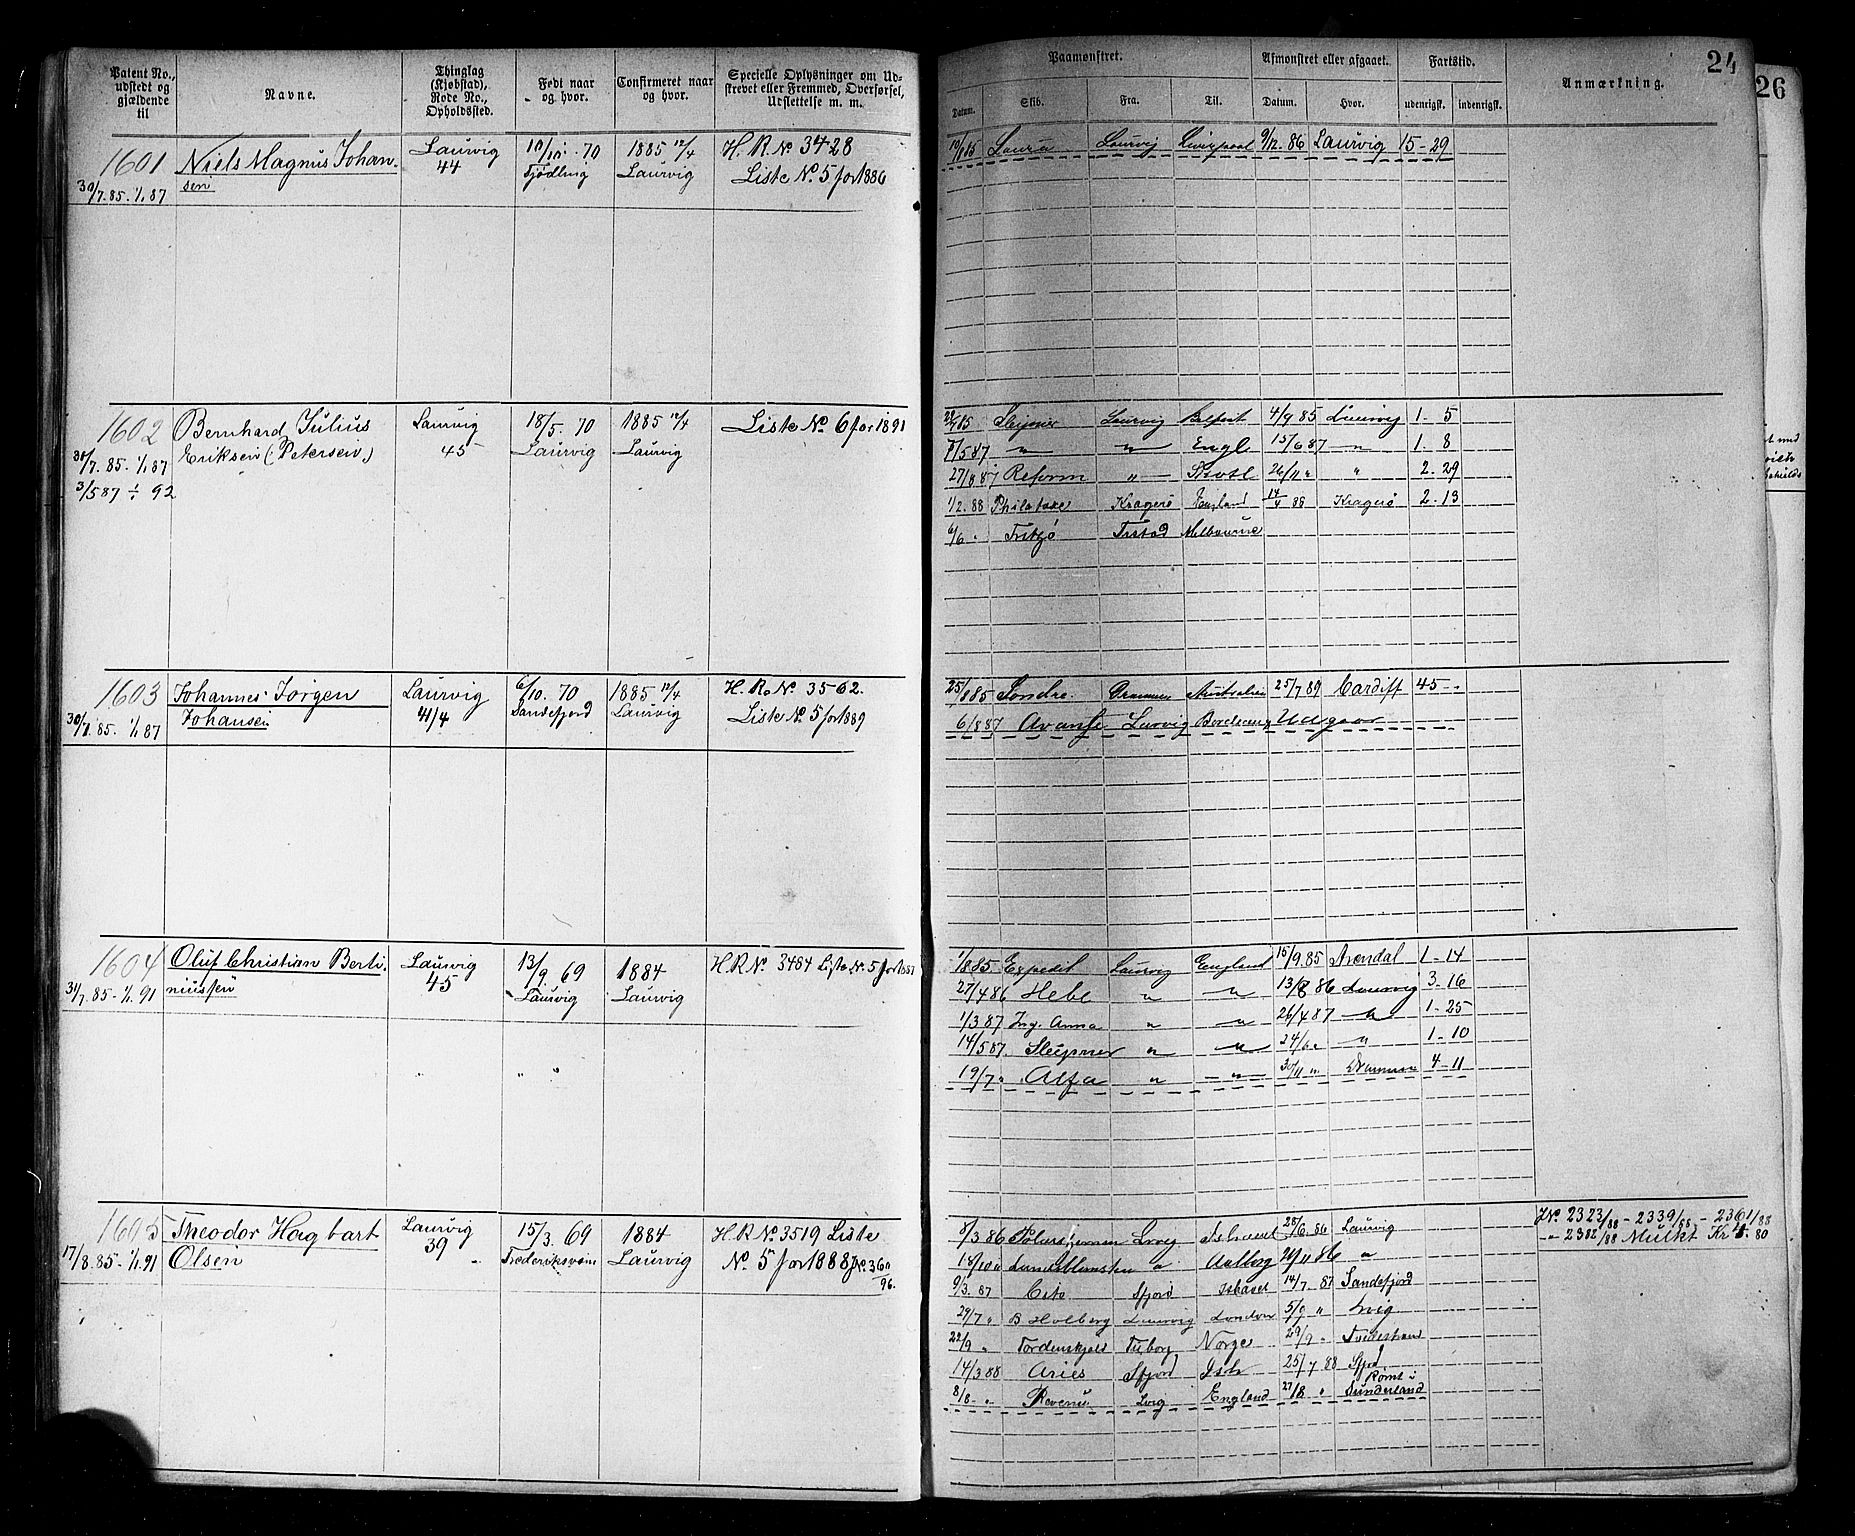 24
26
Patent No., udstedt og gjældende til
Navne.
Thinglag (Kjøbstad), Rode No., Opholdssted.
Født naar og hvor.
Confirmeret naar og hvor.
Specielle Oplysninger om Udskrevet eller Fremmed, Overførsel, Udslettelse m. m.
Paamønstret.
Afmønstret eller afgaaet.
Fartstid.
Anmærkning.
Datum. Skib. Fra. Til. Datum. Hvor. udenrigsk. indenrigsk.
1601 Niels Magnus Johan- Laurvig 70 1885 12/4 H. R. No 3428
30/7.85. 1/1 87 sen 44 Tjødling Laurvig Liste No. 5 for 1886
Laura Laurvig Liverpool 9/12 86 Laurvig 15-29
1602 Bernhard Julius Laurvig 18/5. 70 1885 12/4 Liste No 6 for 1891
30/7. 85. 1/1 87 Eriksen (Petersen) 45 Laurvig Laurvig
3/5 87 ÷ 92
Laurvig Belfast 4/9 85 Laurvig 1- 5
7/5 87 " " Engl 15/6 87 " 1. 8
27/8 87 Reform " 26/11 " " 2. 29
1/2. 88 Kragerø England 14/4 88 Kragerø 2-13
6/6 " Fritzø Melbourne
1603 Johannes Jørgen Laurvig 6/10. 70 1885 12/4 H. R. No. 3562.
30/7. 85. 1/1 87 Johansen 44 Sandefjord Laurvig Liste No 5 for 1889
25/8 85 Sondre Drammen Australien 25/7 87 Cardiff 45-
6/8 87 Avanse Larvig
1604 Oluf Christian Berti- Laurvig 13/9. 69 1884 H.R No. 3484 Liste No. 5 for 1887
31/7. 85. 1/1. 91 niussen 45 Laurvig Laurvig
1/8 85 Expedit Laurvig England 15/9. 85 Arendal 1- 14
27/4 86 Hebe " " 13/8 86 Laurvig 3-16
1/3 87 Ing. Anna " " 26/4 87 " 1-25
14/5 87 Sleipner " " 24/6 " " 1-10
19/7 " Alfa " " 30/11 " Drammen 4-11
1605 Theodor Hagbart Laurvig 15/3. 69 1884 H. R No. 3519 Liste
17/8. 85. 1/1. 91 Olsen 39 Frederiksværn Laurvig No. 5 for 1888
8/3 86 Lrvig Ishavet 28/6. 86 Laurvig
14/10 " " Aalborg 29/11 86 "
9/3. 87 Cito Sfjord Ishavet 14/7. 87 Sandefjord
29/7 " B Holberg Laurvig London 5/9 " Lrvig
22/9 " Tordenskjold Norge 29/9 "
14/3 88 Aries Sfjord Ish 25/7 88 Sfjrd
8/8 " Revenu Lvig England 27/8 " Rømt i Sunderland
JNo 2323/88 - 2339/88 - 2361/88
" 2382/88 Mulkt Kr